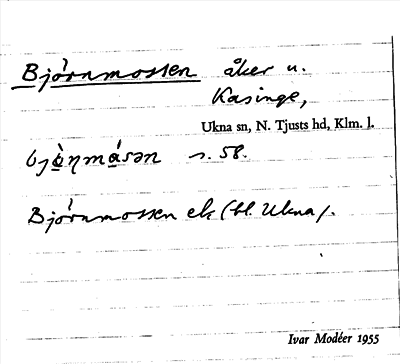 Bjórnmossen åker u.
Kasinge,
Ukna sn, N. Tjusts hd, Klm. l.
bjò̱ŋmá̱sən s. 58.
Bjórnmossen ek (bl. Ukna).
Ivar Modéer 1955